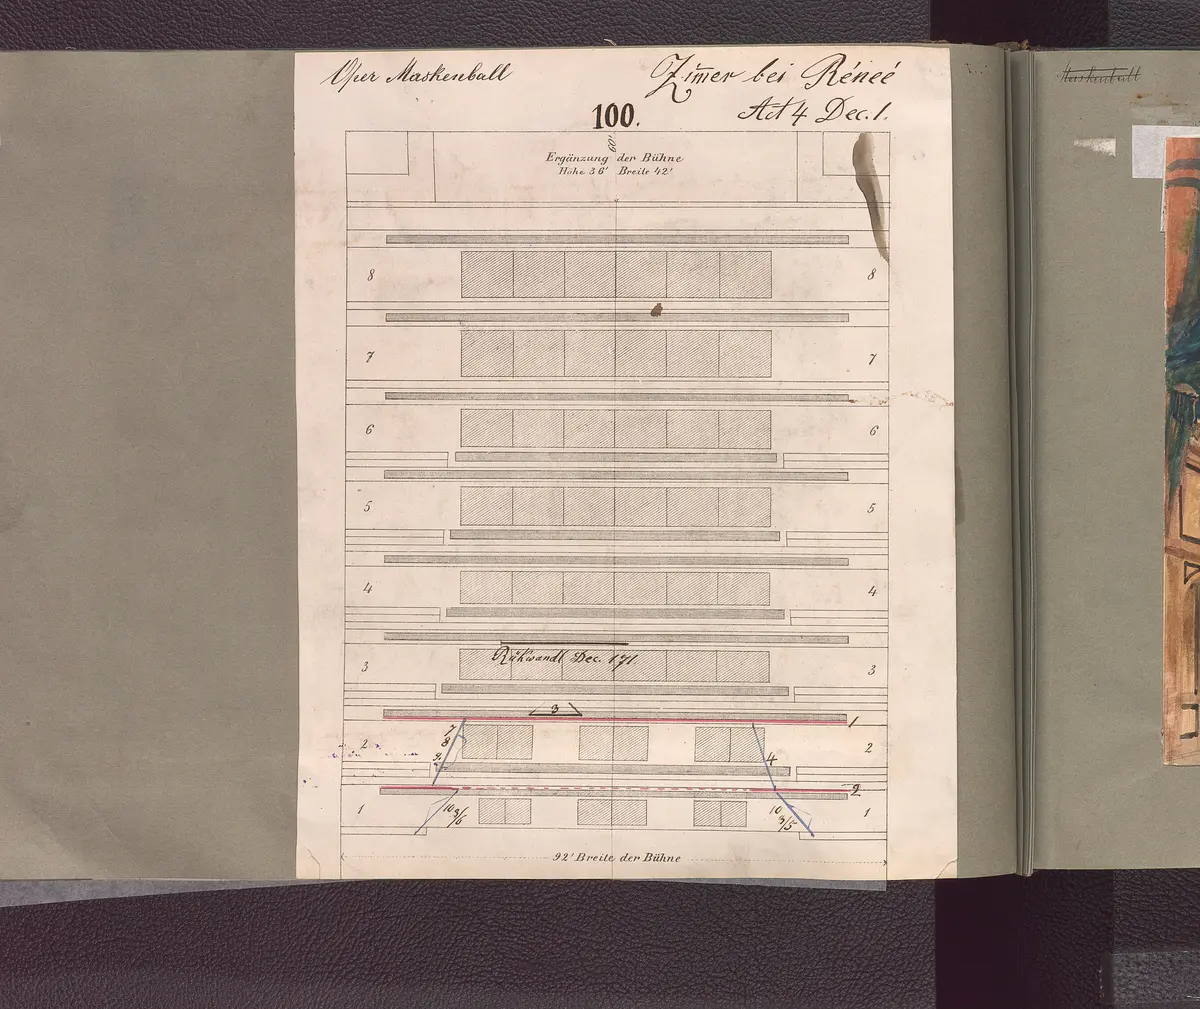 Oper Maskenball
Zim̅er bei Réneé
Act 4 Dec. 1.
100.
60'
Ergänzung der Bühne
Höhe 36' Breite 42'
8 8
7 7
6 6
5 5
4 4
Rükwandl Dec. 171
3 3
3
1
7
8
2 2
9.
4
2
10
9/6
10
9/5
1 1
92' Breite der Bühne
Maskenball